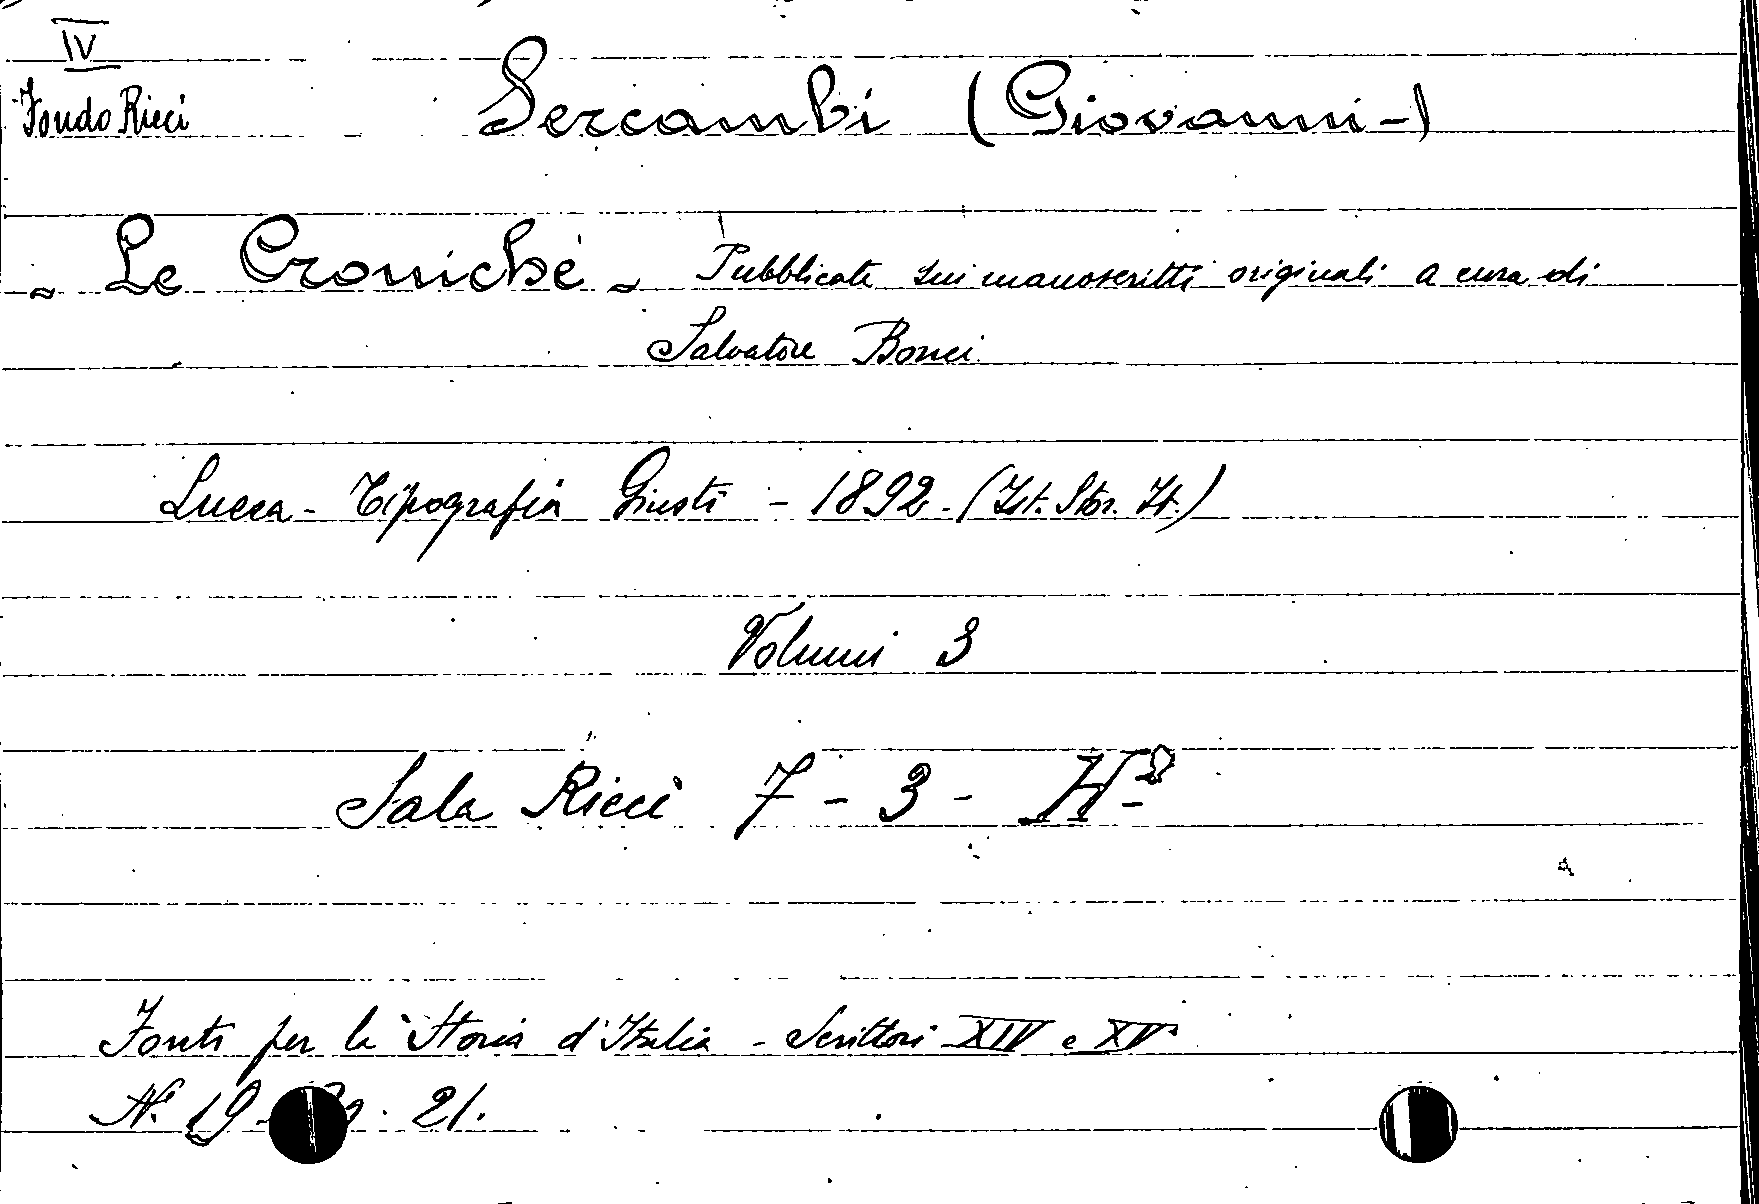 IV
Fondo Ricci
Sercambi (Giovanni-)
- Le Croniche - Pubblicate sui manoscritti originali a cura di
Salvatore Bonci
Lucca - Tipografia Giusti - 1892. (Ist. Stor. It.)
Volumi 3
Sala Ricci 7 - 3 - H
Fonti per la Storia d'Italia - Scrittori XIV e XV
N. 19. 21.